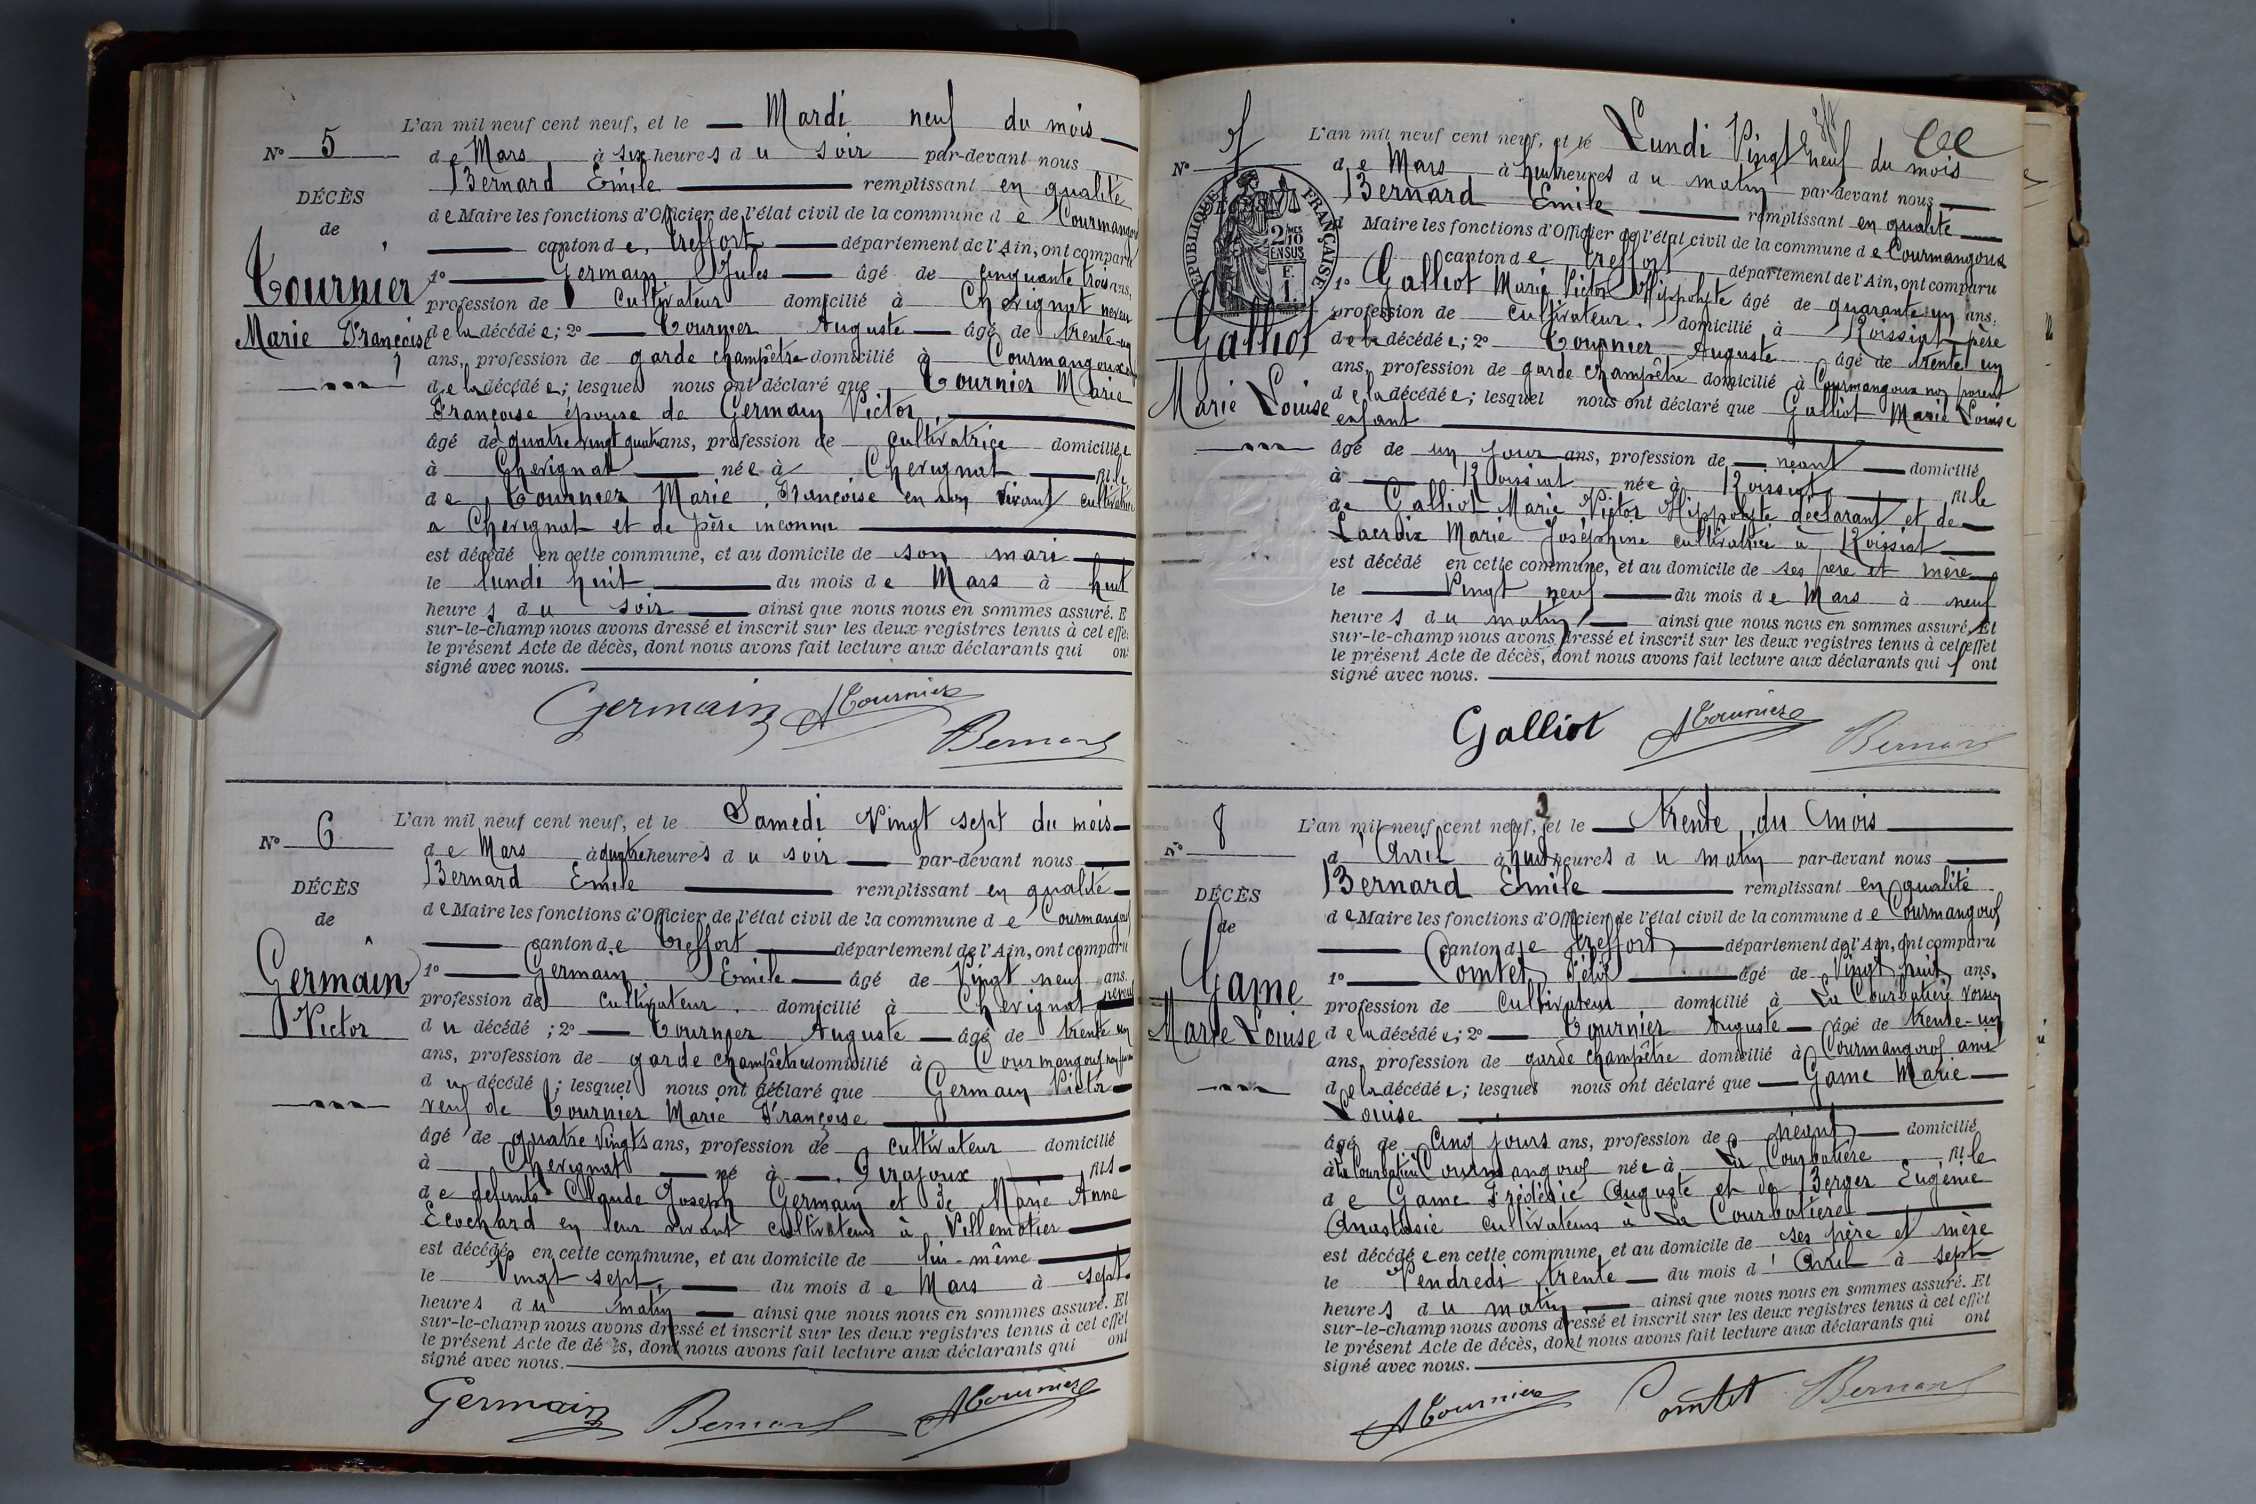 L'an mil neuf cent neuf, et le Mardi neuf du mois
N° 5
de Mars à six heures du soir par-devant nous
Bernard Emile remplissant en qualité
DÉCÈS
de Maire les fonctions d'Officier de l'état civil de la commune de Courmangoux
de
canton de Treffort département de l'Ain, ont comparu
1° Germain Jules âgé de cinquante trois ans,
Tournier
profession de cultivateur domicilié à Chevignat neveu
Marie Françoise
de la décédée; 2° Tournier Auguste âgé de trente-un
ans, profession de garde champêtre domicilié à Courmangoux
de la décédée; lesquels nous ont déclaré que Tournier Marie
Françoise épouse de Germain Victor
âgé de quatre vingt quatre ans, profession de cultivatrice domiciliée
à Chevignat née à Chevignat fille
de Tournier Marie Françoise en son vivant cultivatrice
a Chevignat et de père inconnu
est décédé en cette commune, et au domicile de son mari
le lundi huit du mois de Mars à huit
heures du soir ainsi que nous nous en sommes assuré. E
sur-le-champ nous avons dressé et inscrit sur les deux registres tenus à cet effe
le présent Acte de décès, dont nous avons fait lecture aux déclarants qui on
signé avec nous.
Germain ATournier
Bernard
L'an mil neuf cent neuf, et le Samedi Vingt sept du mois
N° 6
de Mars à quatre heures du soir par-devant nous
Bernard Emile remplissant en qualité
DÉCÈS
de Maire les fonctions d'Officier de l'état civil de la commune de Courmangoux
de
canton de Treffort département de l'Ain, ont comparu
Germain
1° Germain Emile âgé de Vingt neuf ans
profession de cultivateur domicilié à Chevignat neveu
Victor
du décédé; 2° Tournier Auguste âgé de trente un
ans, profession de garde champêtre domicilié à Courmangoux non parent
du décédé; lesquel nous ont déclaré que Germain Victor
veuf de Tournier Marie Françoise
âgé de quatre vingts ans, profession de cultivateur domicilié
à Chevignat né à fils
de defunts Claude Joseph Germain et de Marie Anne
Ecochard en leur vivant cultivateurs à Villemotier
est décédé en cette commune, et au domicile de lui-même
le Vingt sept du mois de Mars à sept
heures du matin ainsi que nous nous en sommes assuré. Et
sur-le-champ nous avons dressé et inscrit sur les deux registres tenus à cet effet
le présent Acte de décès, dont nous avons fait lecture aux déclarants qui ont
signé avec nous.
Germain Bernard ATournier
L'an mil neuf cent neuf, et le Lundi Vingt neuf du mois
N° 7
de Mars à huit heures du matin par-devant nous
Bernard Emile remplissant en qualité
RÉPUBLIQUE FRANÇAISE
2/10 EN SUS
F. 1.
d Maire les fonctions d'Officier de l'état civil de la commune de Courmangoux
canton de Treffort département de l'Ain, ont comparu
1° Galliot Marie Victor Hippolyte âgé de quarante un ans,
profession de cultivateur domicilié à Roissiat père
Galliot
de la décédée; 2° Tournier Auguste âgé de trente un
ans, profession de garde champêtre domicilié à Courmangoux non parent
Marie Louise
de la décédée; lesquel nous ont déclaré que Galliot Marie Louise
enfant
âgé de un jour ans, profession de néant domicilié
à Roissiat née à Roissiat fille
de Galliot Marie Victor Hippolyte déclarant et de
Lacroix Marie Joséphine cultivatrice à Roissiat
est décédé en cette commune, et au domicile de ses père et mère
le Vingt neuf du mois de Mars à neuf
heures du matin ainsi que nous nous en sommes assuré. Et
sur-le-champ nous avons dressé et inscrit sur les deux registres tenus à cet effet
le présent Acte de décès, dont nous avons fait lecture aux déclarants qui ont
signé avec nous.
Galliot ATournier Bernard
L'an mil neuf cent neuf, et le trente du mois
N° 8
d'Avril à huit heures du matin par-devant nous
Bernard Emile remplissant en qualité
DÉCÈS
de Maire les fonctions d'Officier de l'état civil de la commune de Courmangoux
de
canton de Treffort département de l'Ain, ont comparu
1° Comtet Félix âgé de Vingt huit ans,
Game
profession de cultivateur domicilié à La Courbatière voisin
Marie Louise
de la décédée; 2° Tournier Auguste âgé de trente-un
ans, profession de garde champêtre domicilié à Courmangoux ami
de la décédée; lesquels nous ont déclaré que Game Marie
Louise
âgé de cinq jours ans, profession de néant domicilié
à la Courbatière Courmangoux née à La Courbatière fille
de Game Frédéric Auguste et de Berger Eugénie
Anastasie cultivateurs à La Courbatière
est décédée en cette commune, et au domicile de ses père et mère
le Vendredi trente du mois d'Avril à sept
heures du matin ainsi que nous nous en sommes assuré. Et
sur-le-champ nous avons dressé et inscrit sur les deux registres tenus à cet effet
le présent Acte de décès, dont nous avons fait lecture aux déclarants qui ont
signé avec nous.
ATournier Comtet Bernard